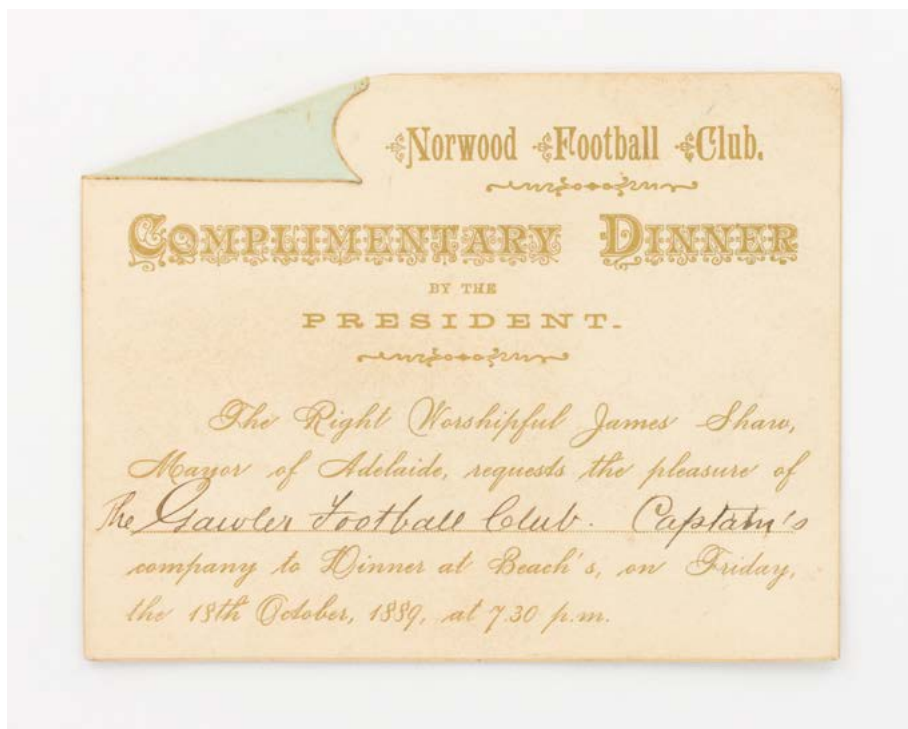 Norwood Football Club.
COMPLIMENTARY DINNER
BY THE
PRESIDENT.
The Right Worshipful James Shaw,
Mayor of Adelaide, requests the pleasure of
The Gawler Football Club. Captain's
company to Dinner at Beach's, on Friday,
the 18th October, 1889, at 7.30 p.m.